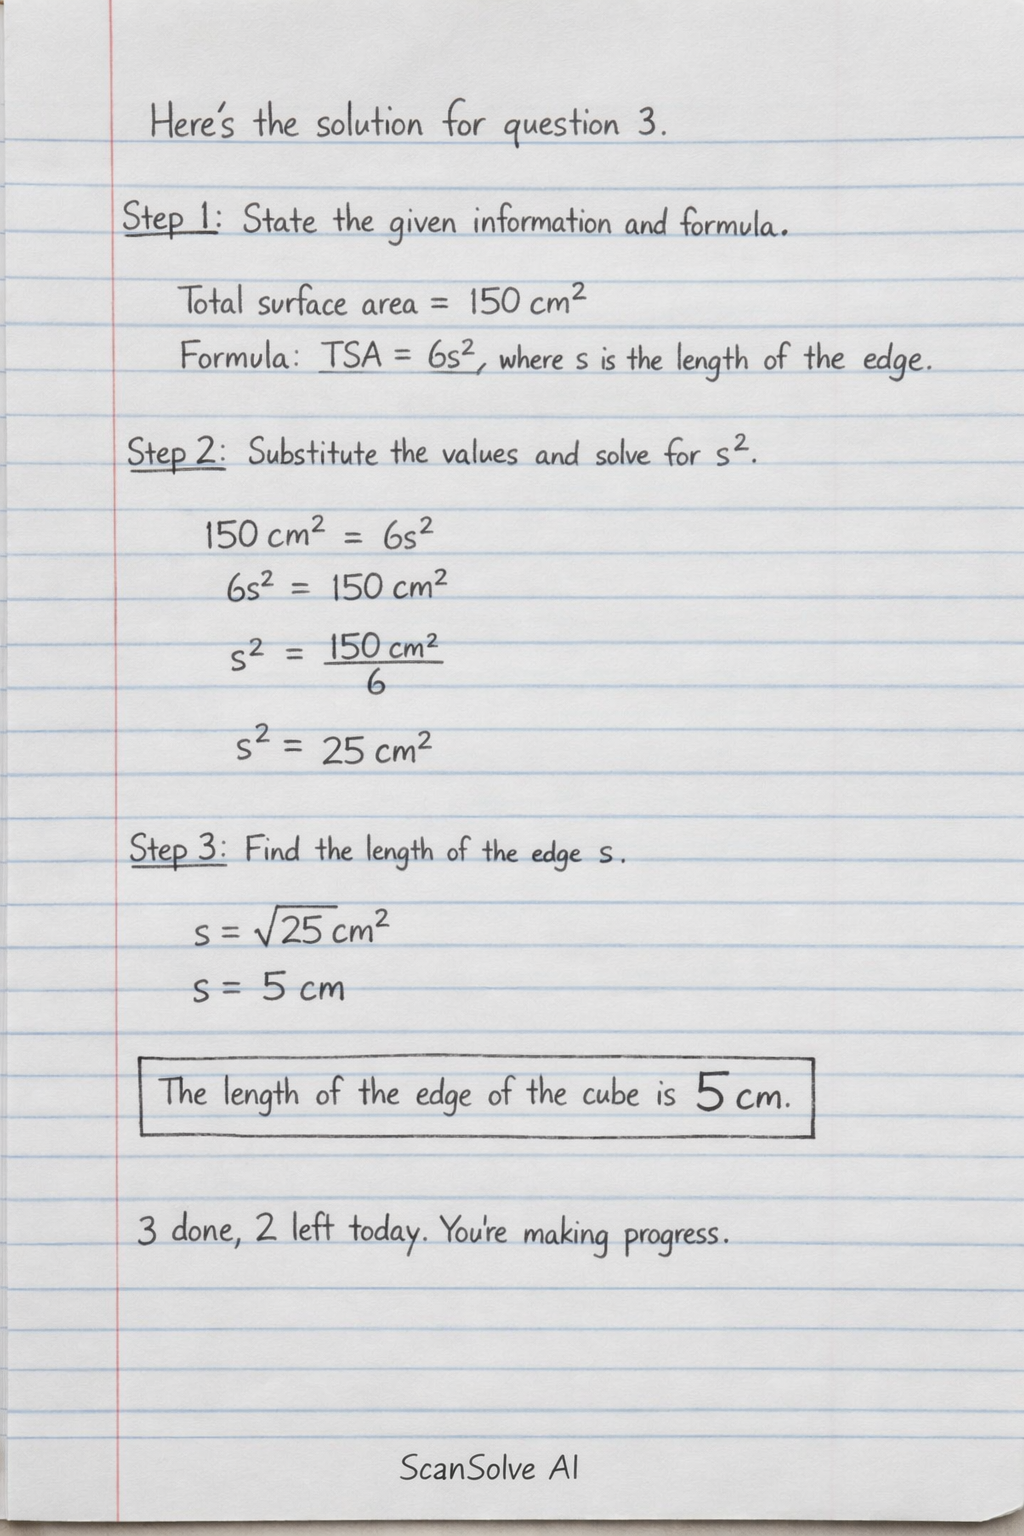 Here's the solution for question 3.
Step 1: State the given information and formula.
Total surface area = 150 cm²
Formula: TSA = 6s², where s is the length of the edge.
Step 2: Substitute the values and solve for s².
150 cm² = 6s²
6s² = 150 cm²
s² = 150 cm² / 6
s² = 25 cm²
Step 3: Find the length of the edge s.
s = √25 cm²
s = 5 cm
The length of the edge of the cube is 5 cm.
3 done, 2 left today. You're making progress.
ScanSolve AI